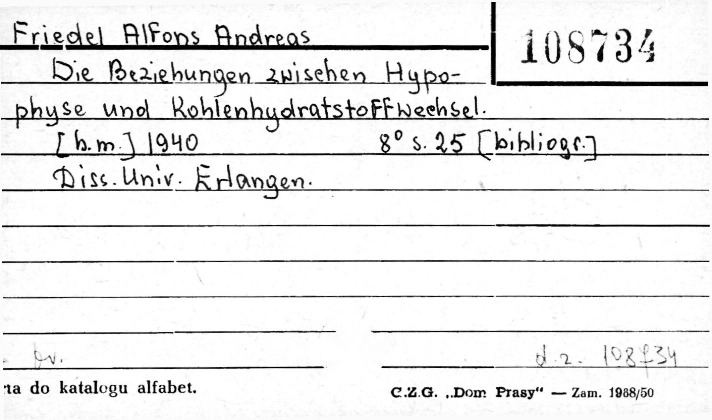 Friedel Alfons Andreas
108734
Die Beziehungen zwischen Hypo-
physe und Kohlenhydratstoffwechsel.
[b.m.] 1940 8° s. 25 [bibliogr.]
Diss. Univ. Erlangen.
br. d.z. 108734
ta do katalogu alfabet.
C.Z.G. „Dom Prasy“ — Zam. 1988/50